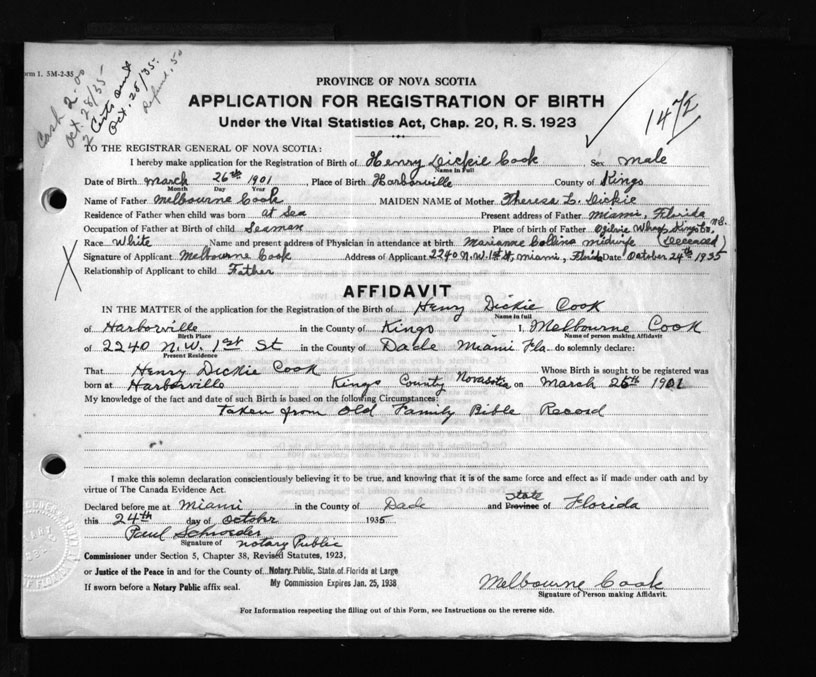 orm 1. 5M-2-35
Cash 2.00
Oct. 28/35
2 Certs sent
Oct. 28/35.
Refund .50
PROVINCE OF NOVA SCOTIA
APPLICATION FOR REGISTRATION OF BIRTH
Under the Vital Statistics Act, Chap. 20, R. S. 1923
TO THE REGISTRAR GENERAL OF NOVA SCOTIA:
I hereby make application for the Registration of Birth of Henry Dickie Cook Sex male
Name in Full
Date of Birth March 26th 1901, Place of Birth Harborville County of Kings
Month Day Year
Name of Father Melbourne Cook MAIDEN NAME of Mother Theresa L. Dickie
Residence of Father when child was born at Sea Present address of Father Miami, Florida
Occupation of Father at Birth of child Seaman Place of birth of Father Ogilvie Wharf Kings Co. N.S.
Race White Name and present address of Physician in attendance at birth Marianne Collins midwife (Deceased)
Signature of Applicant Melbourne Cook Address of Applicant 2240 N.W. 1st St, Miami, Florida Date October 24th 1935
Relationship of Applicant to child Father
AFFIDAVIT
IN THE MATTER of the application for the Registration of the Birth of Henry Dickie Cook
Name in full
of Harborville in the County of Kings I, Melbourne Cook
Birth Place Name of person making Affidavit
of 2240 N.W. 1st St in the County of Dade Miami Fla. do solemnly declare:
Present Residence
That Henry Dickie Cook Whose Birth is sought to be registered was
born at Harborville Kings County Novascotia on March 26th 1901
My knowledge of the fact and date of such Birth is based on the following Circumstances:
Taken from Old Family Bible Record
I make this solemn declaration conscientiously believing it to be true, and knowing that it is of the same force and effect as if made under oath and by
virtue of The Canada Evidence Act.
Declared before me at Miami in the County of Dade and State Province of Florida
this 24th day of October 1935
Paul Schroeder
Signature of notary Public
Commissioner under Section 5, Chapter 38, Revised Statutes, 1923,
or Justice of the Peace in and for the County of Notary Public, State of Florida at Large
My Commission Expires Jan. 25, 1938
If sworn before a Notary Public affix seal.
Melbourne Cook
Signature of Person making Affidavit.
For Information respecting the filling out of this Form, see Instructions on the reverse side.